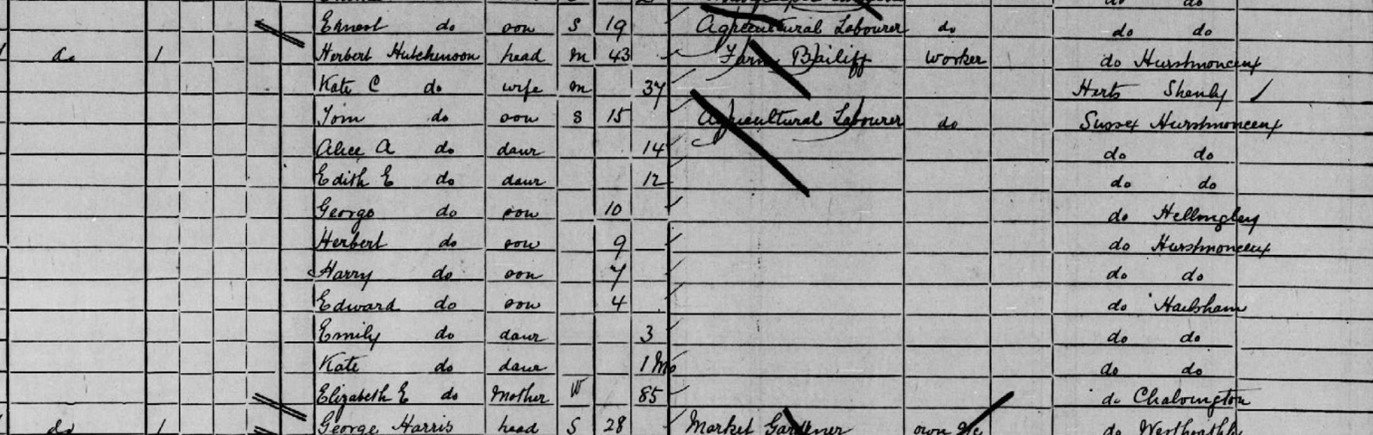 do do
Ernest do son S 19 Agricultural Labourer do do do
do 1 Herbert Hutchinson head M 43 Farm Bailiff Worker do Hurstmonceux
Kate C do wife M 37 Herts Shenly
Tom do son S 15 Agricultural Labourer do Sussex Hurstmonceux
Alice A do daur 14 do do
Edith E do daur 12 do do
George do son 10 do Hellingley
Herbert do son 9 do Hurstmonceux
Harry do son 7 do do
Edward do son 4 do Hailsham
Emily do daur 3 do do
Kate do daur 1 Mo do do
Elizabeth E do Mother W 85 do Chalvington
do 1 George Harris head S 28 Market Gardener own a/c do